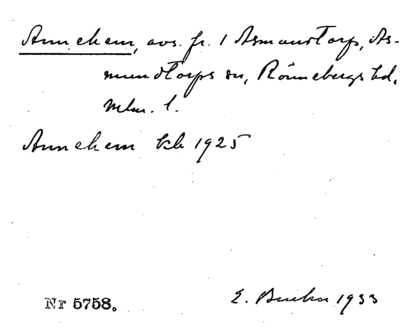 Annehem, avs. fr. 1 Asmundtorp, As-
mundtorps sn, Rönnebergs hd,
Mlm. l.
Annehem kb 1925
Nr 5758.
E. 1933